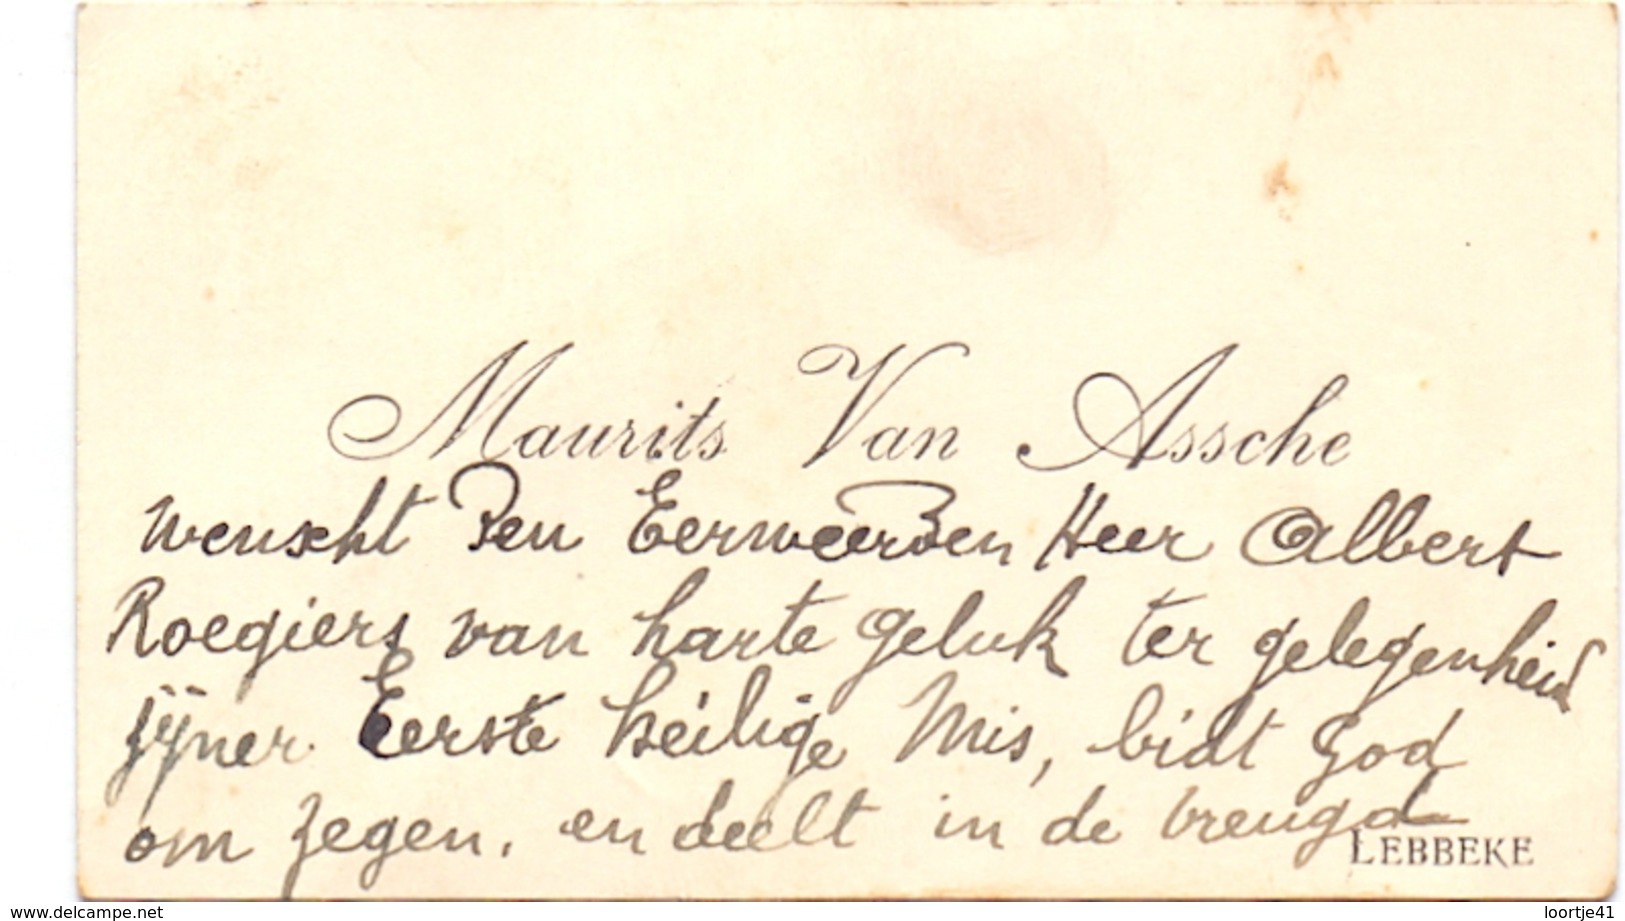 Maurits Van Assche
wenscht Den Eerweerden Heer Albert
Roegiers van harte geluk ter gelegenheid
zijner Eerste heilige Mis, bidt God
om zegen, en deelt in de vreugd
LEBBEKE
www.delcampe.net
loortje41